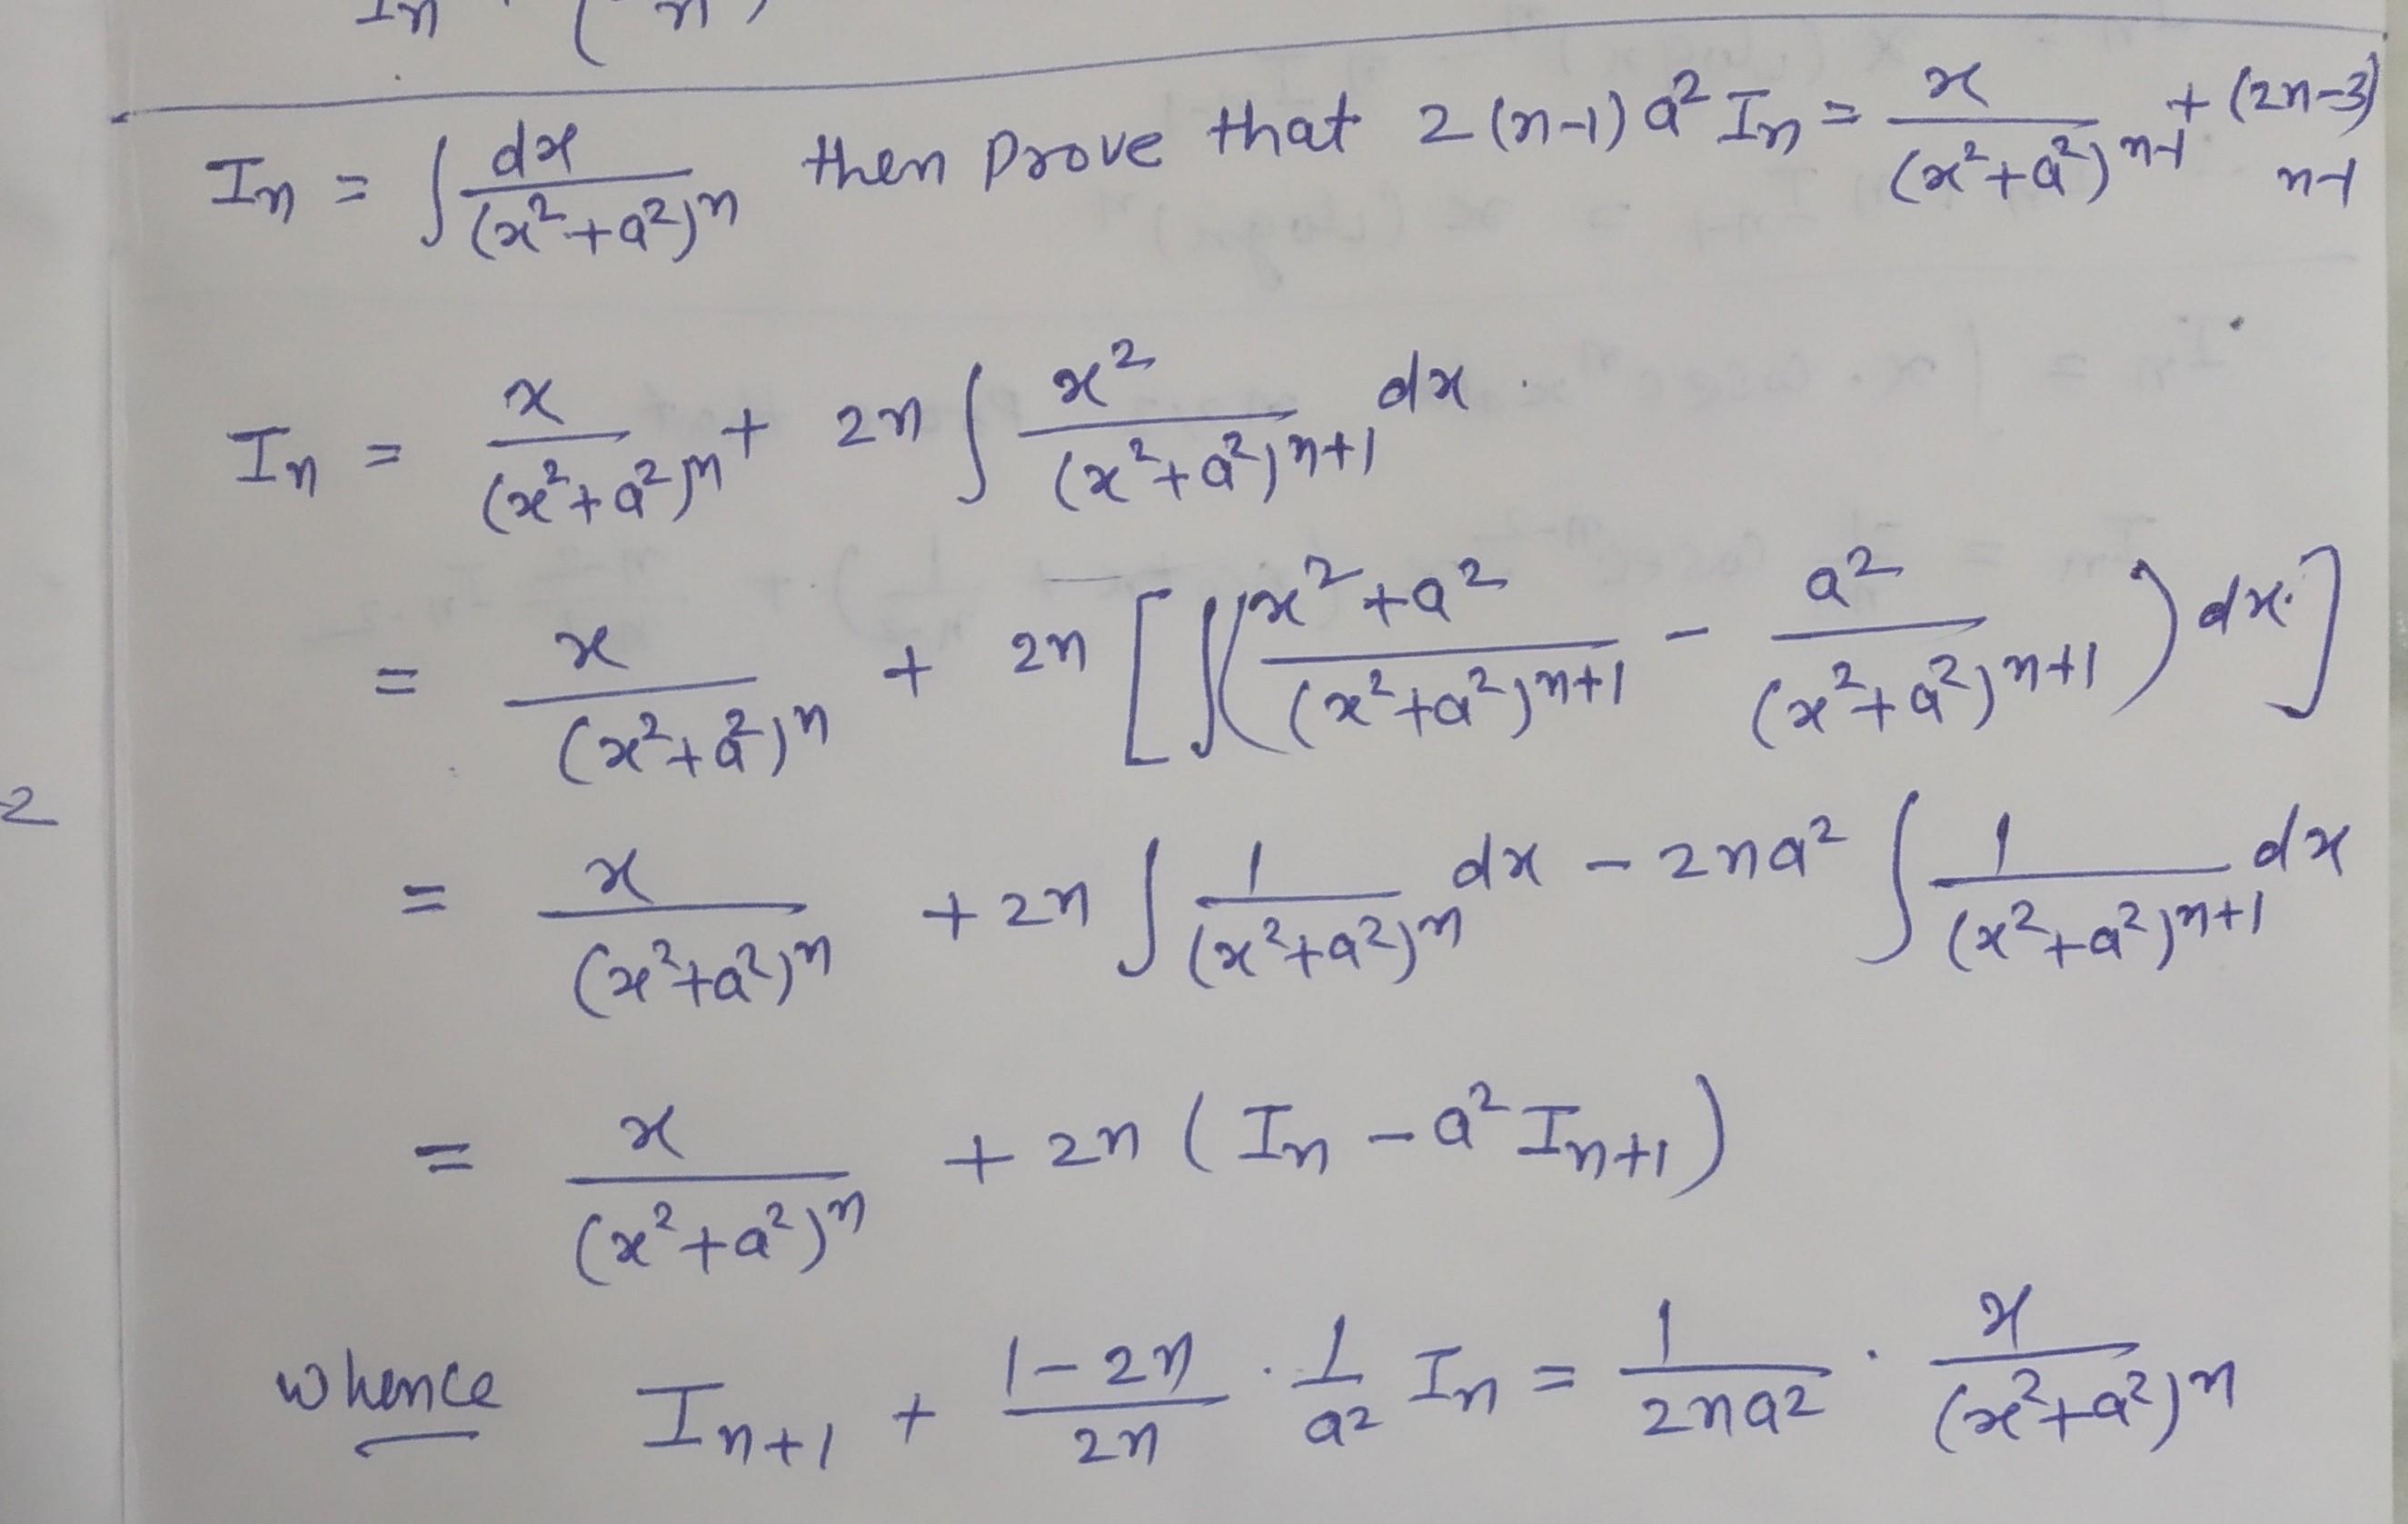 In (n)
In = ∫ dx/(x²+a²)^n then prove that 2(n-1)a² In = x/(x²+a²)^n-1 + (2n-3)
n-1
In = x/(x²+a²)^n + 2n ∫ x²/(x²+a²)^n+1 dx.
= x/(x²+a²)^n + 2n [∫(x²+a²/(x²+a²)^n+1 - a²/(x²+a²)^n+1) dx.]
2
= x/(x²+a²)^n + 2n ∫ 1/(x²+a²)^n dx - 2na² ∫ 1/(x²+a²)^n+1 dx
= x/(x²+a²)^n + 2n (In - a² In+1)
whence In+1 + 1-2n/2n · 1/a² In = 1/2na² · x/(x²+a²)^n